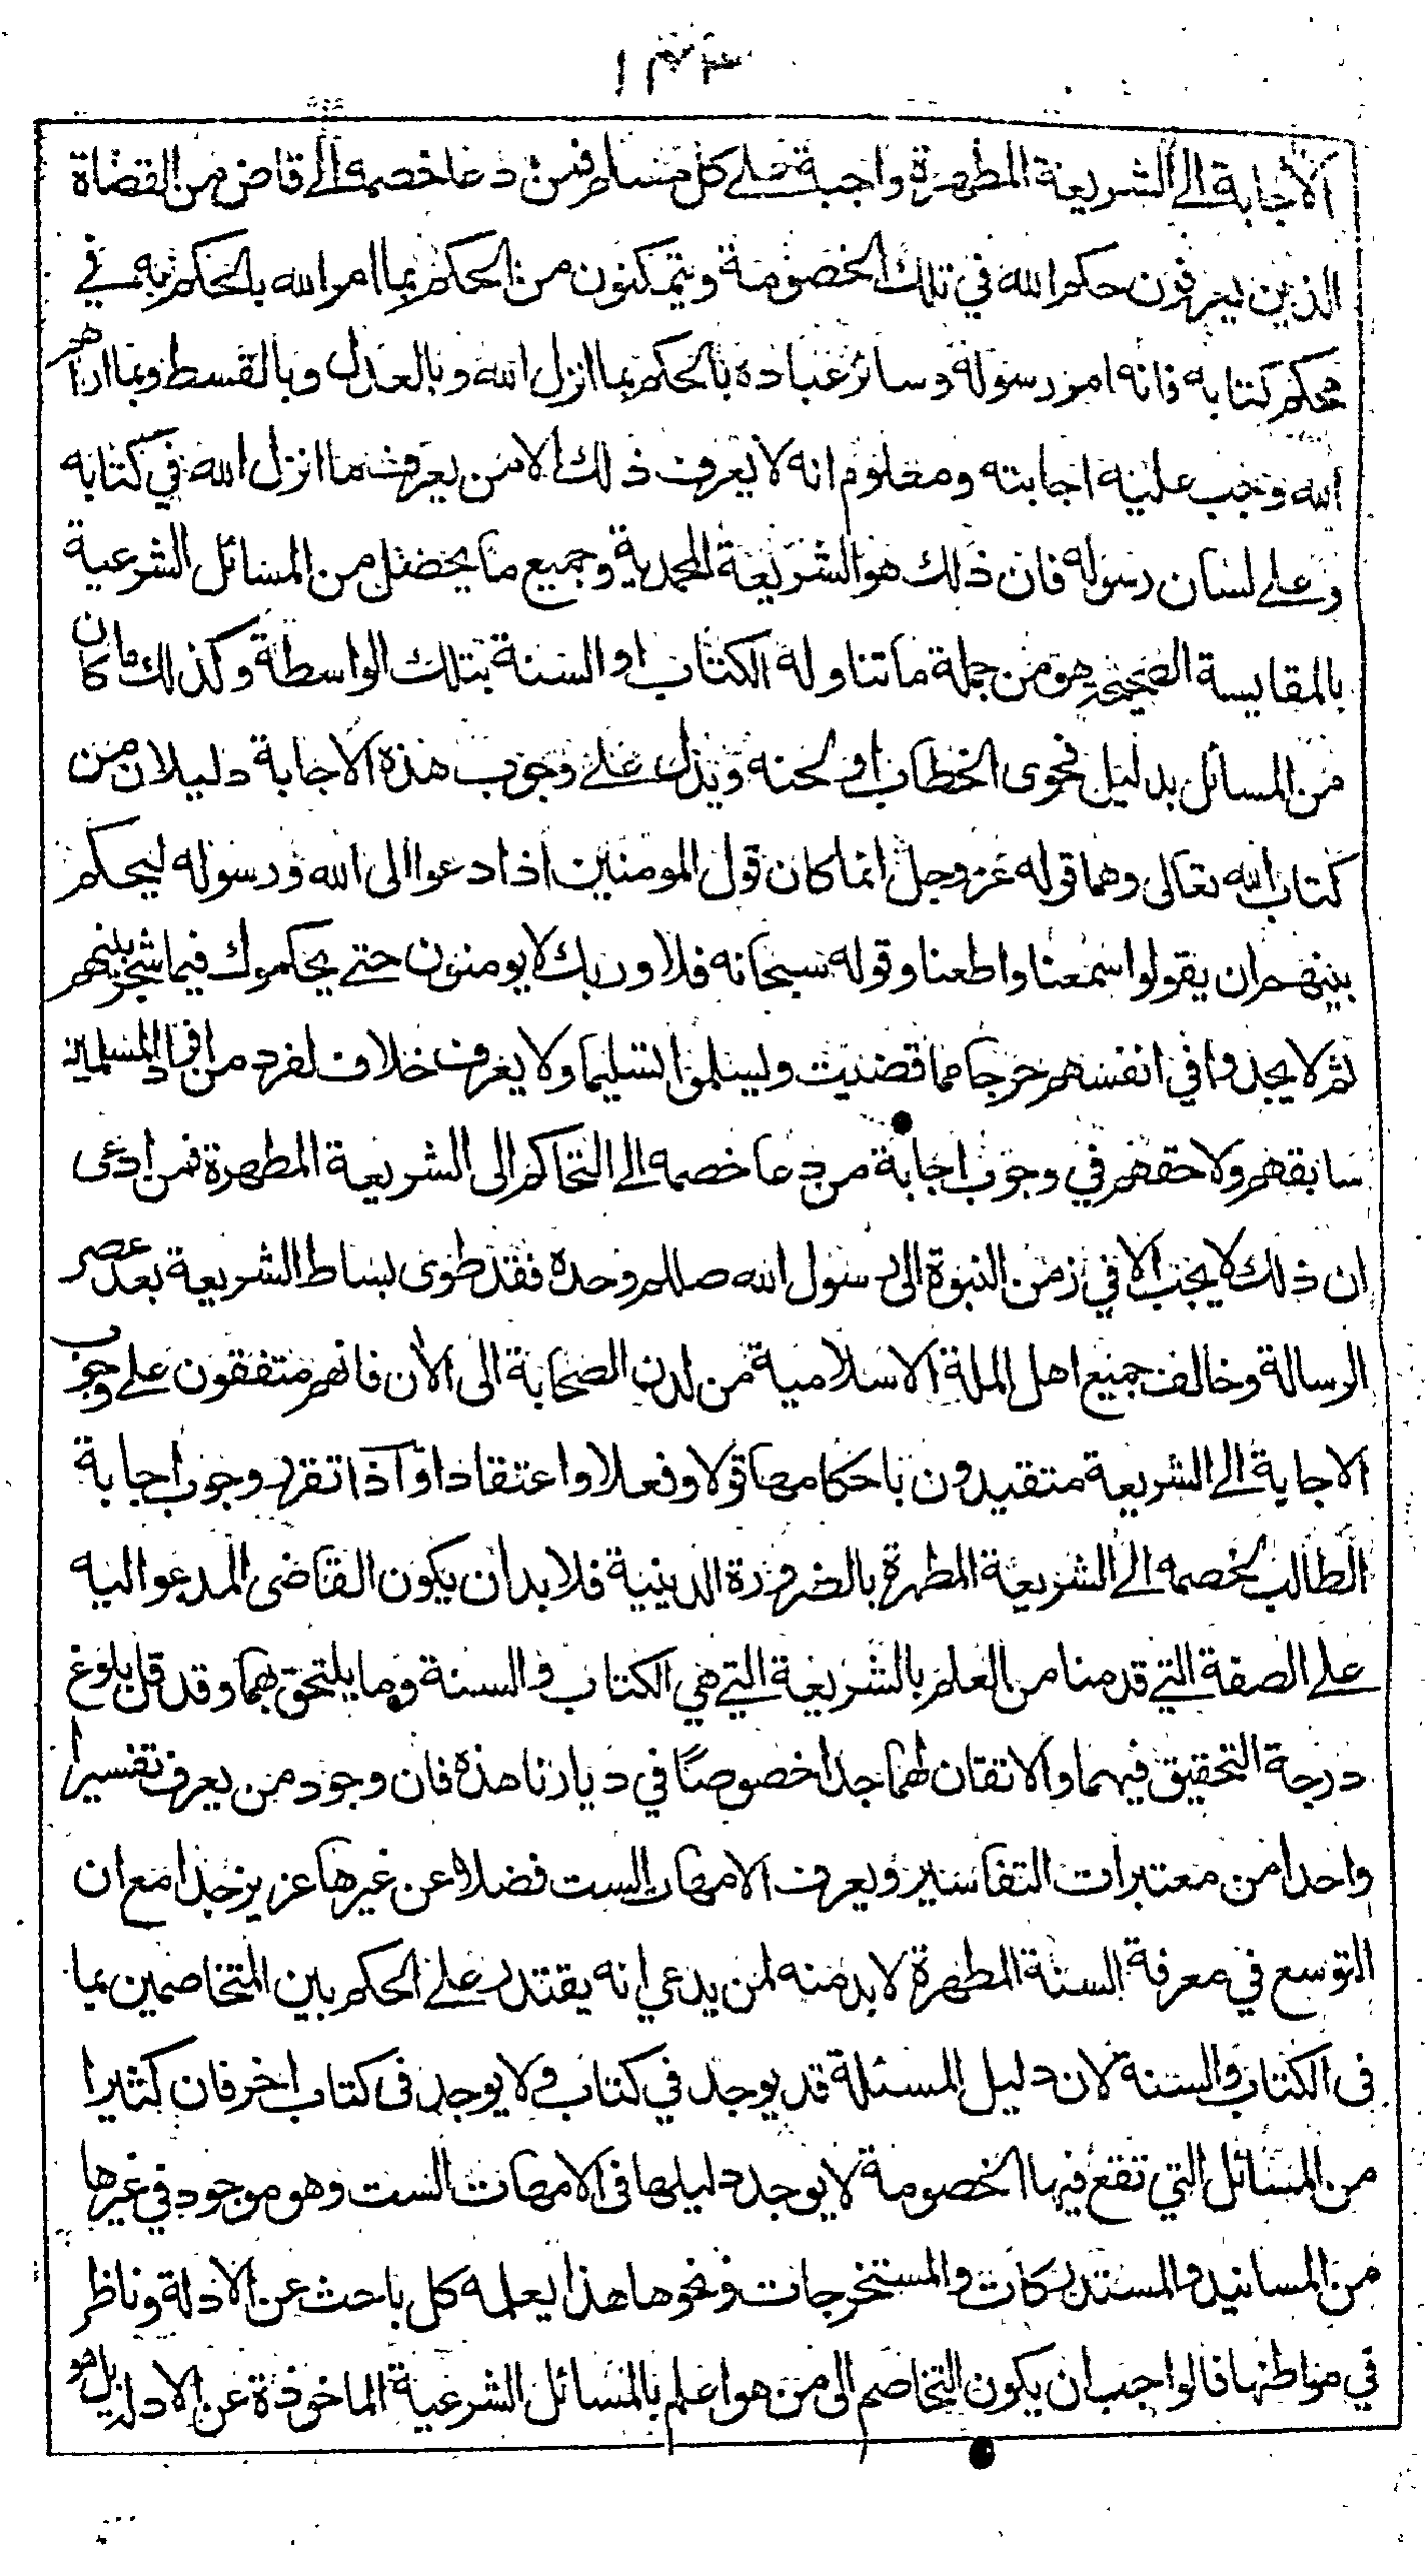 ١٤٣
الاجابة الى الشريعة المطهرة واجبة على كل مسلم فمن دعا خصمه الى قاض من القضاة
الذين يعرفون حكم الله في تلك الخصومة ويتمكنون من الحكم بما امر الله بالحكم به في
محكم كتابه فانه امر رسوله وسائر عباده بالحكم بما انزل الله وبالعدل وبالقسط وبما اراهم
الله وجب عليه اجابته ومعلوم انه لا يعرف ذلك الا من يعرف ما انزل الله في كتابه
وعلى لسان رسوله فان ذلك هو الشريعة المحمدية وجميع ما يحصل من المسائل الشرعية
بالمقايسة الصحيحة هو من جملة ما تناوله الكتاب او السنة بتلك الواسطة وكذلك ما كان
من المسائل بدليل فحوى الخطاب او لحنه ويدل على وجوب هذه الاجابة دليلان من
كتاب الله تعالى وهما قوله عز وجل انما كان قول المومنين اذا دعوا الى الله ورسوله ليحكم
بينهم ان يقولوا سمعنا واطعنا وقوله سبحانه فلا وربك لا يومنون حتى يحكموك فيما شجر بينهم
ثم لا يجدوا في انفسهم حرجا مما قضيت ويسلموا تسليما ولا يعرف خلاف لفرد من افراد المسلمين
سابقهم ولاحقهم في وجوب اجابة من دعا خصمه الى التحاكم الى الشريعة المطهرة فمن ادعى
ان ذلك لا يجب الا في زمن النبوة الى رسول الله صللم وحده فقد طوى بساط الشريعة بعد عصر
الرسالة وخالف جميع اهل الملة الاسلامية من لدن الصحابة الى الآن فانهم متفقون على وجوب
الاجابة الى الشريعة متقيدون باحكامها قولا وفعلا واعتقادا واذا تقرر وجوب اجابة
الطالب لخصمه الى الشريعة المطهرة بالضرورة الدينية فلا بد ان يكون القاضى المدعو اليه
على الصفة التي قدمنا من العلم بالشريعة التي هي الكتاب والسنة وما يلتحق بهما وقد قل بلوغ
درجة التحقيق فيهما والاتقان لهما جدا خصوصًا في ديارنا هذه فان وجود من يعرف تفسيرا
واحدا من معتبرات التفاسير ويعرف الامهات الست فضلا عن غيرها عزيز جدا مع ان
التوسع في معرفة السنة المطهرة لا بد منه لمن يدعي انه يقتدر على الحكم بين المتخاصمين بما
فى الكتاب والسنة لان دليل المسئلة قد يوجد في كتاب ولا يوجد فى كتاب اخر فان كثيرا
من المسائل التي تقع فيها الخصومة لا يوجد دليلها فى الامهات الست وهو موجود في غيرها
من المسانيد والمستدركات والمستخرجات ونحوها هذا يعلمه كل باحث عن الادلة وناظر
في مواطنها فالواجب ان يكون التخاصم الى من هو اعلم بالمسائل الشرعية الماخوذة عن الادلة بل هو